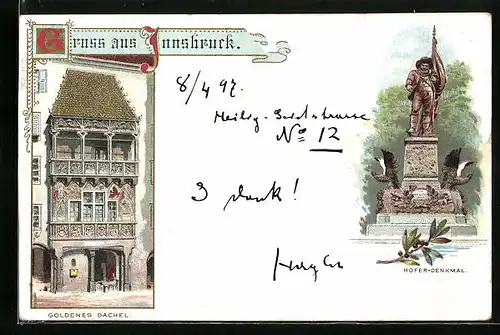 Gruss aus Innsbruck.
8/4 97.
Heilig-Geiststrasse
No 12
I dank!
GOLDENES DACHEL
HOFER-DENKMAL.